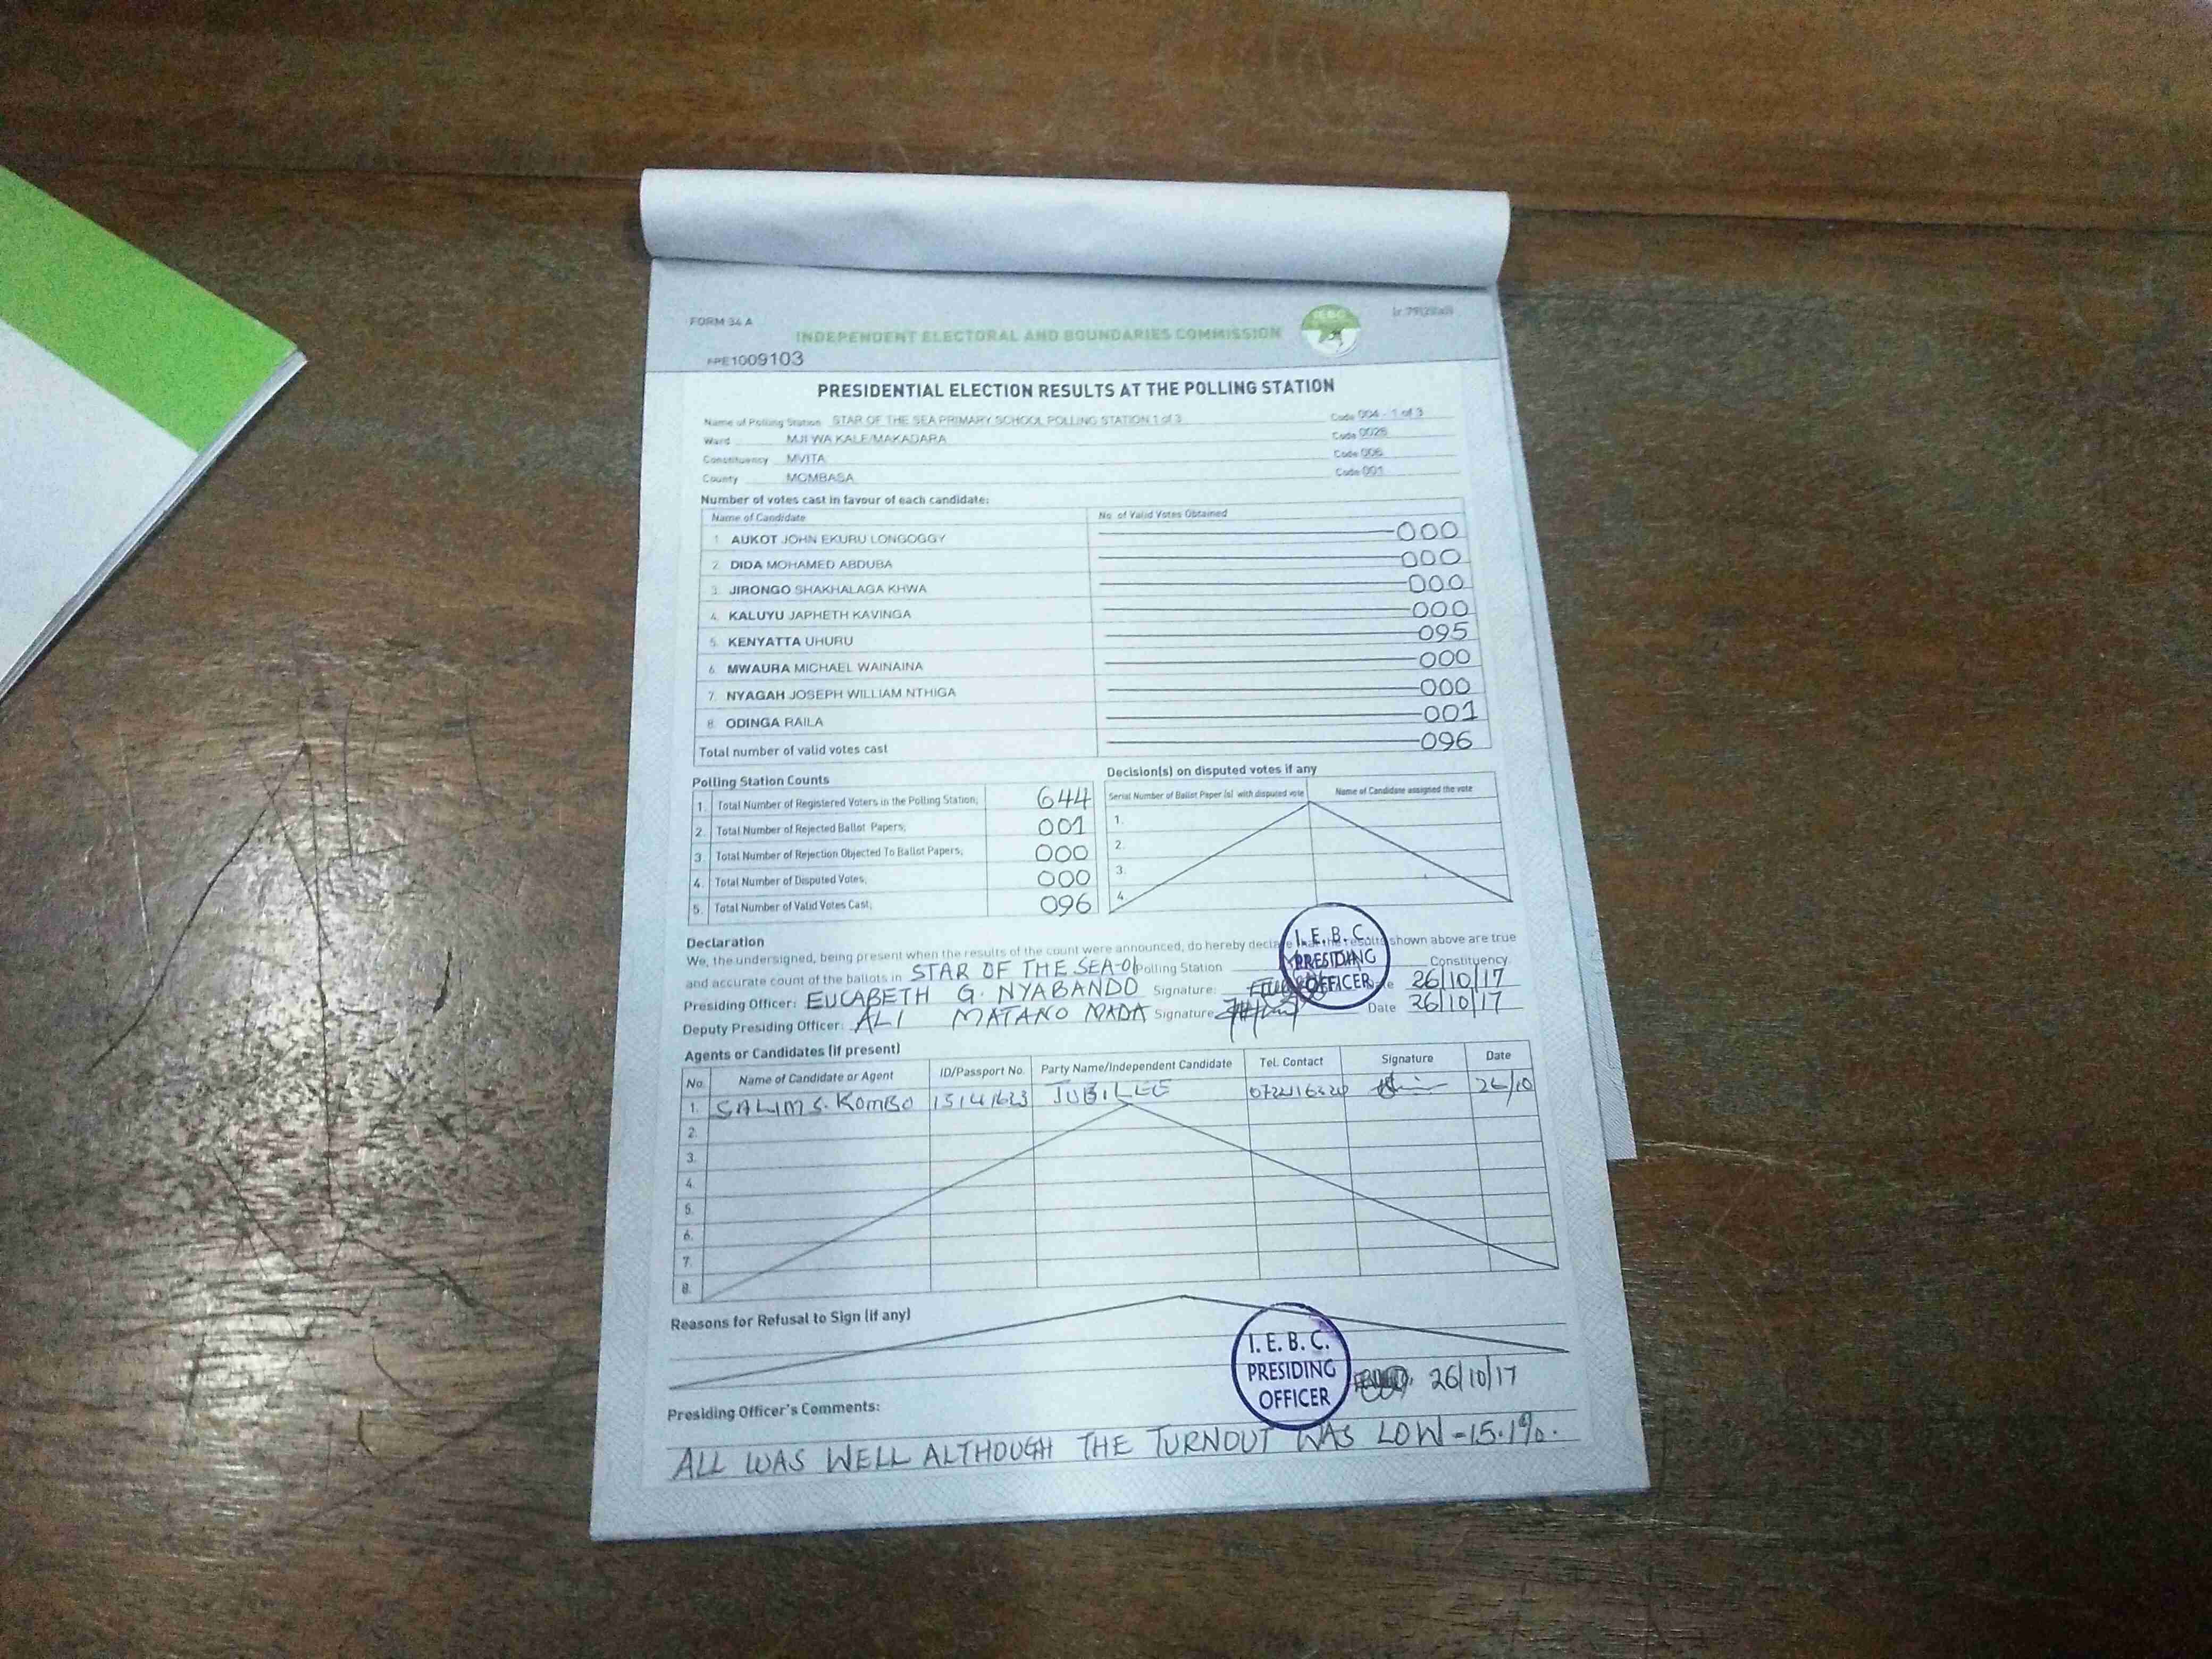 FORM 34 A
INDEPENDENT ELECTORAL AND BOUNDARIES COMMISSION
1009103
PRESIDENTIAL ELECTION RESULTS AT THE POLLING STATION
Name of Polling Station STAR OF THE SEA PRIMARY SCHOOL POLLING STATION 1 of 3 Code 004 - 1 of 3
Ward MJI WA KALE/MAKADARA Code 0026
Constituency MVITA Code 006
County MOMBASA Code 001
Number of votes cast in favour of each candidate:
Name of Candidate No. of Valid Votes Obtained
1. AUKOT JOHN EKURU LONGOGGY 000
2. DIDA MOHAMED ABDUBA 000
3. JIRONGO SHAKHALAGA KHWA 000
4. KALUYU JAPHETH KAVINGA 000
5. KENYATTA UHURU 095
6. MWAURA MICHAEL WAINAINA 000
7. NYAGAH JOSEPH WILLIAM NTHIGA 000
8. ODINGA RAILA 001
Total number of valid votes cast 096
Polling Station Counts
1. Total Number of Registered Voters in the Polling Station; 644
2. Total Number of Rejected Ballot Papers; 001
3. Total Number of Rejection Objected To Ballot Papers; 000
4. Total Number of Disputed Votes; 000
5. Total Number of Valid Votes Cast; 096
Decision(s) on disputed votes if any
Serial Number of Ballot Paper (s) with disputed vote Name of Candidate assigned the vote
1.
2.
3.
4.
Declaration
We, the undersigned, being present when the results of the count were announced, do hereby declare that the results shown above are true
and accurate count of the ballots in STAR OF THE SEA-01 Polling Station Constituency.
Presiding Officer: EUCABETH G. NYABANDO Signature: Date 26/10/17
Deputy Presiding Officer: ALI MATANO NADA Signature: Date 26/10/17
I. E. B. C.
PRESIDING
OFFICER
Agents or Candidates (if present)
No. Name of Candidate or Agent ID/Passport No. Party Name/Independent Candidate Tel. Contact Signature Date
1. SALIM S. KOMBO JUBILEE 26/10
2.
3.
4.
5.
6.
7.
8.
Reasons for Refusal to Sign (if any)
I. E. B. C.
PRESIDING
OFFICER
26/10/17
Presiding Officer's Comments:
ALL WAS WELL ALTHOUGH THE TURNOUT WAS LOW - 15.1%.